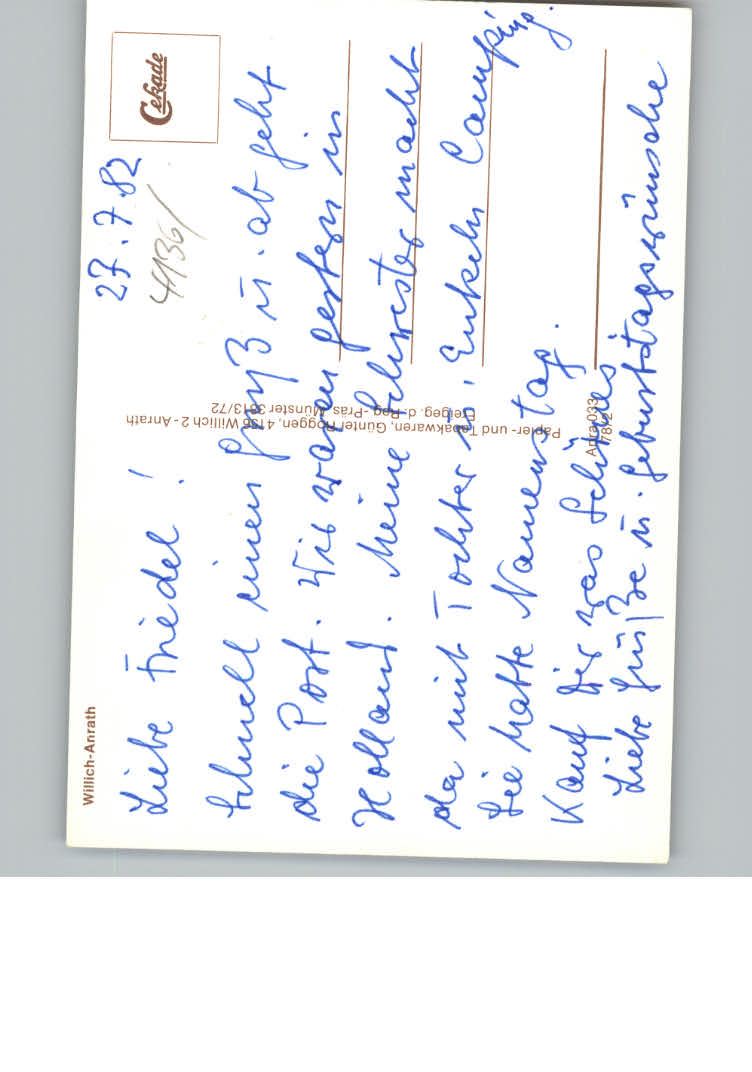 Willich-Anrath
Cekade
27.7.82
4136/
Liebe Friedel!
Schnell einen Gruß u. ab geht
die Post. Wir waren gestern in
Holland. Meine Schwester macht
da mit Tochter u. Enkeln Camping.
Sie hatte Namenstag.
Kauf Dir was Schönes
Liebe Grüße u. Geburtstagswünsche
Papier- und Tabakwaren, Günter Roggen, 4156 Willich 2 - Anrath
Freigeg. d. Reg.-Präs. Münster 3613/72
Anra 033